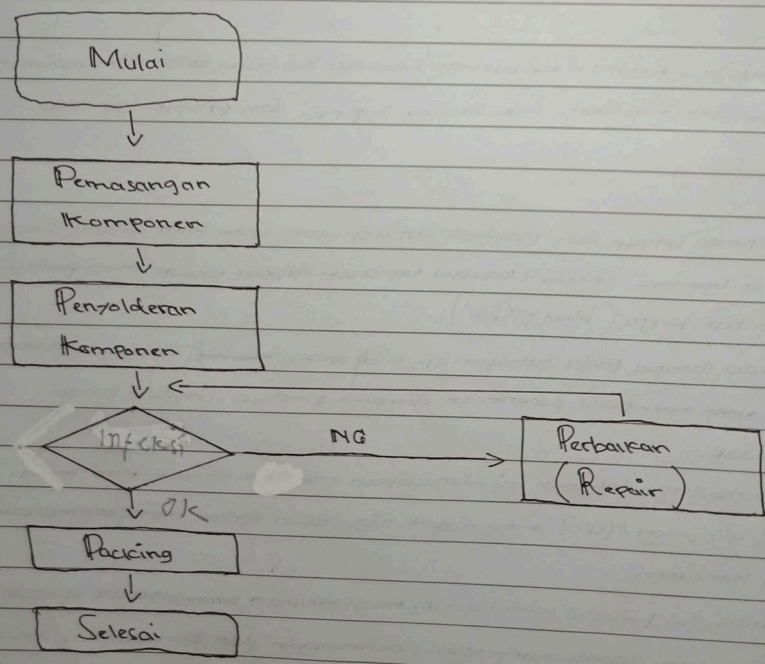 Mulai
Pemasangan
Komponen
Penyolderan
Komponen
Infeksi
NG
Perbaikan
(Repair)
OK
Packing
Selesai